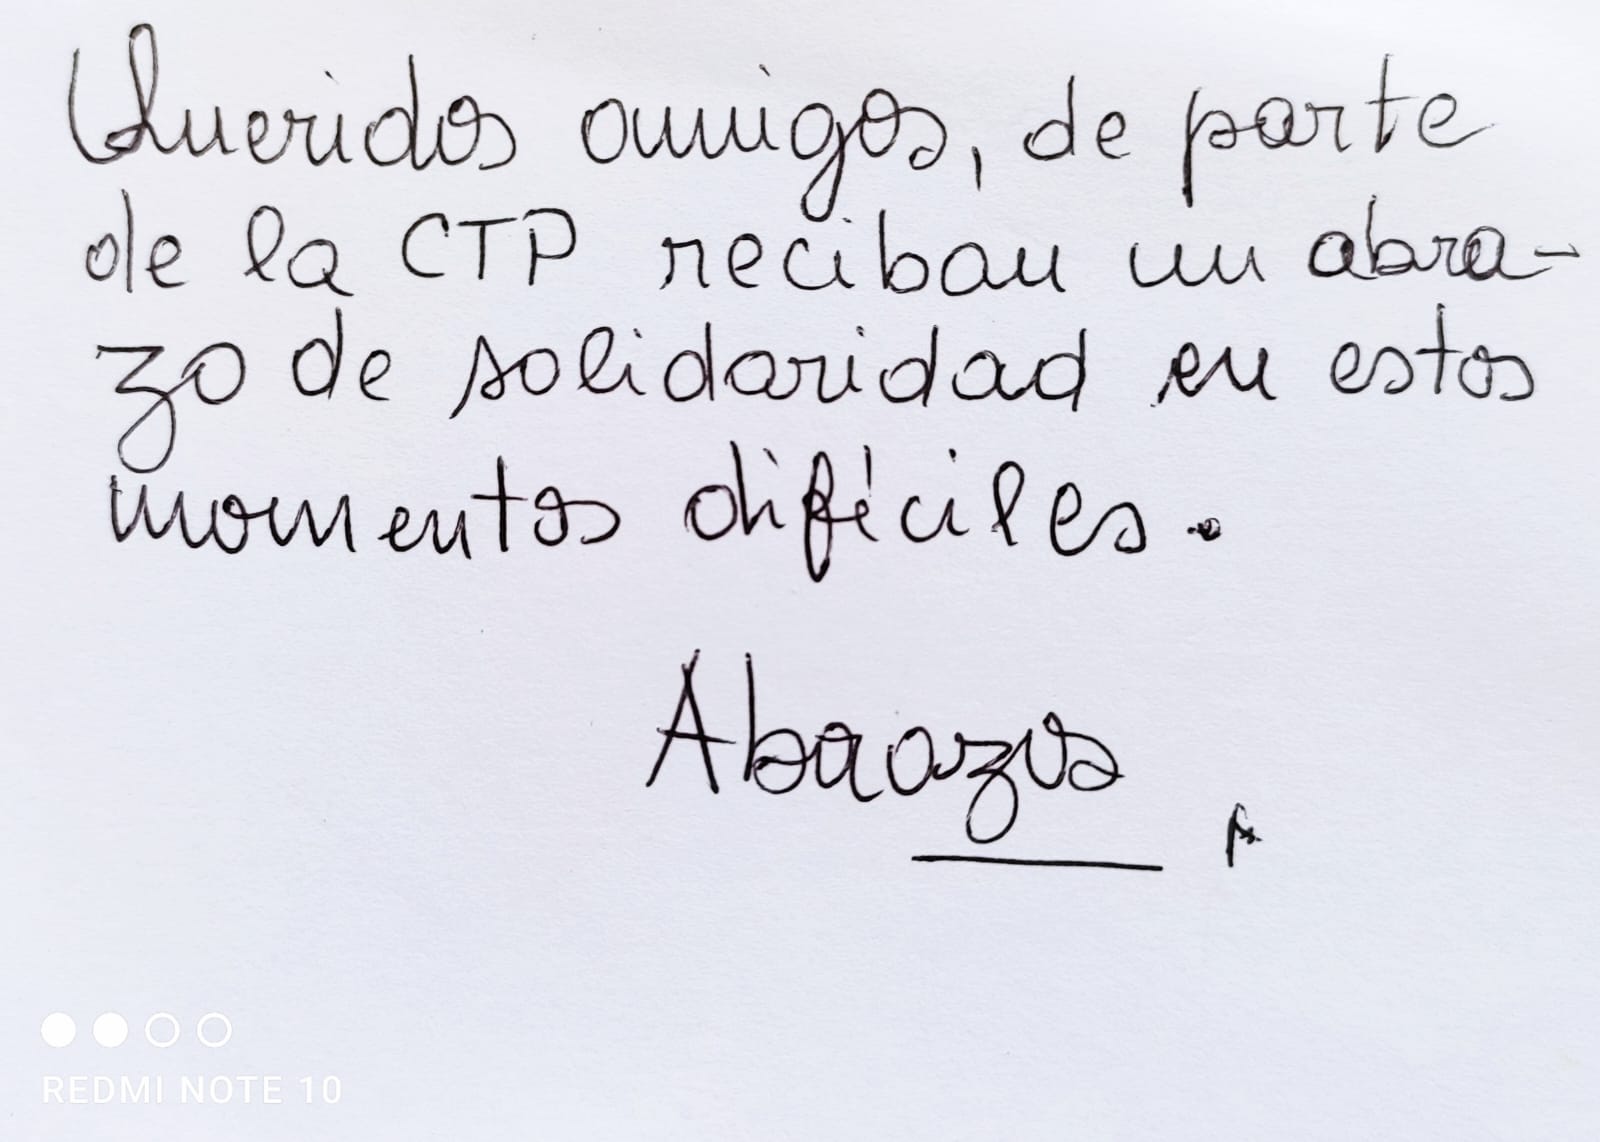 Queridos amigos, de parte
de la CTP reciban un abra-
zo de solidaridad en estos
momentos difíciles.
Abrazos
REDMI NOTE 10